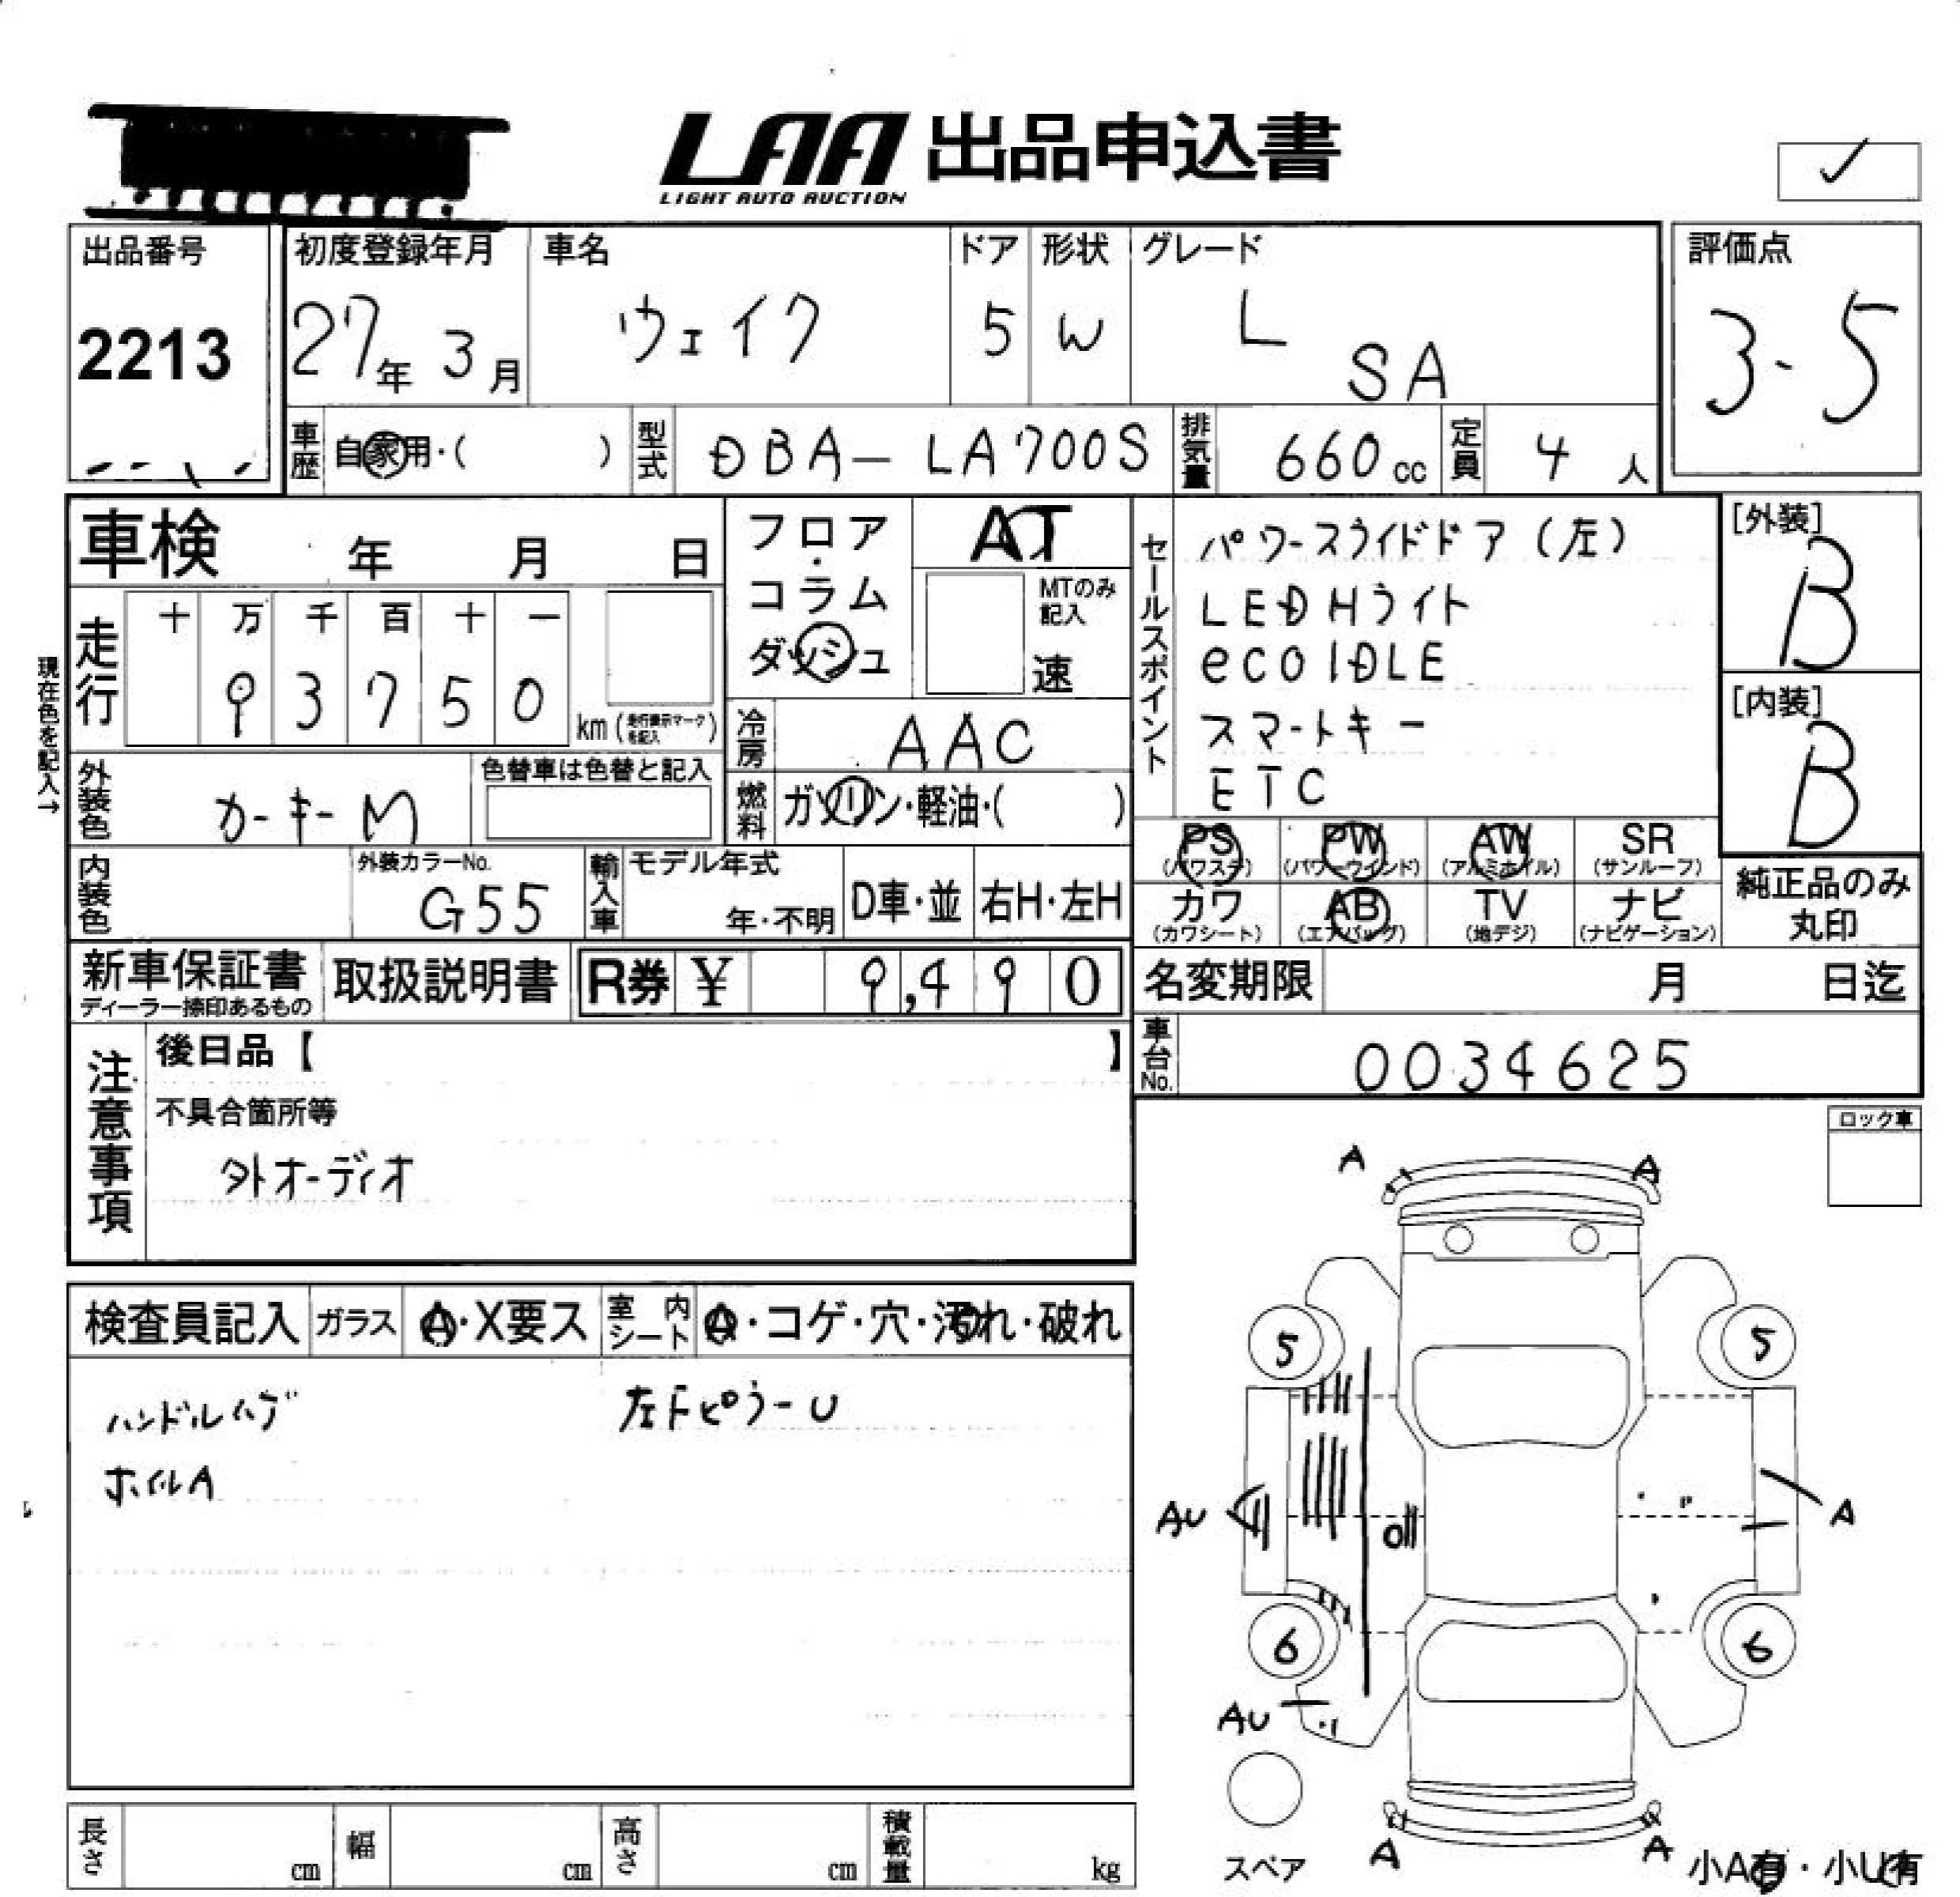 LAA 出品申込書
LIGHT AUTO AUCTION
出品番号
2213
初度登録年月
27年 3月
車名
ウェイク
ドア
5
形状
W
グレード
L
SA
評価点
3.5
車歴
自家用・( )
型式
DBA-LA700S
排気量
660cc
定員
4人
車検 年 月 日
走行
十 万 千 百 十 一
9 3 7 5 0
km(走行表示マークを記入)
現在色を記入→
フロア・コラム
ダッシュ
AT
MTのみ記入
速
冷房
AAC
燃料
ガソリン・軽油・( )
セールスポイント
パワースライドドア(左)
LED Hライト
eco IDLE
スマートキー
ETC
[外装]
B
[内装]
B
外装色
カーキーM
色替車は色替と記入
内装色
外装カラーNo.
G55
輸入車
モデル年式
年・不明
D車・並
右H・左H
PS
(パワステ)
PW
(パワーウインド)
AW
(アルミホイル)
SR
(サンルーフ)
カワ
(カワシート)
AB
(エアバッグ)
TV
(地デジ)
ナビ
(ナビゲーション)
純正品のみ
丸印
新車保証書
ディーラー捺印あるもの
取扱説明書
R券 ¥ 9,490
名変期限 月 日迄
車台No.
0034625
注意事項
後日品【 】
不具合箇所等
外オーディオ
ロック車
検査員記入
ガラス
A・X要ス
室内シート
A・コゲ・穴・汚れ・破れ
ハンドルハゲ
左Fピラー U
ホイルA
A
A
5
5
AU
A
6
6
AU
スペア
A
A
小A有・小U有
長さ cm
幅 cm
高さ cm
積載量 kg